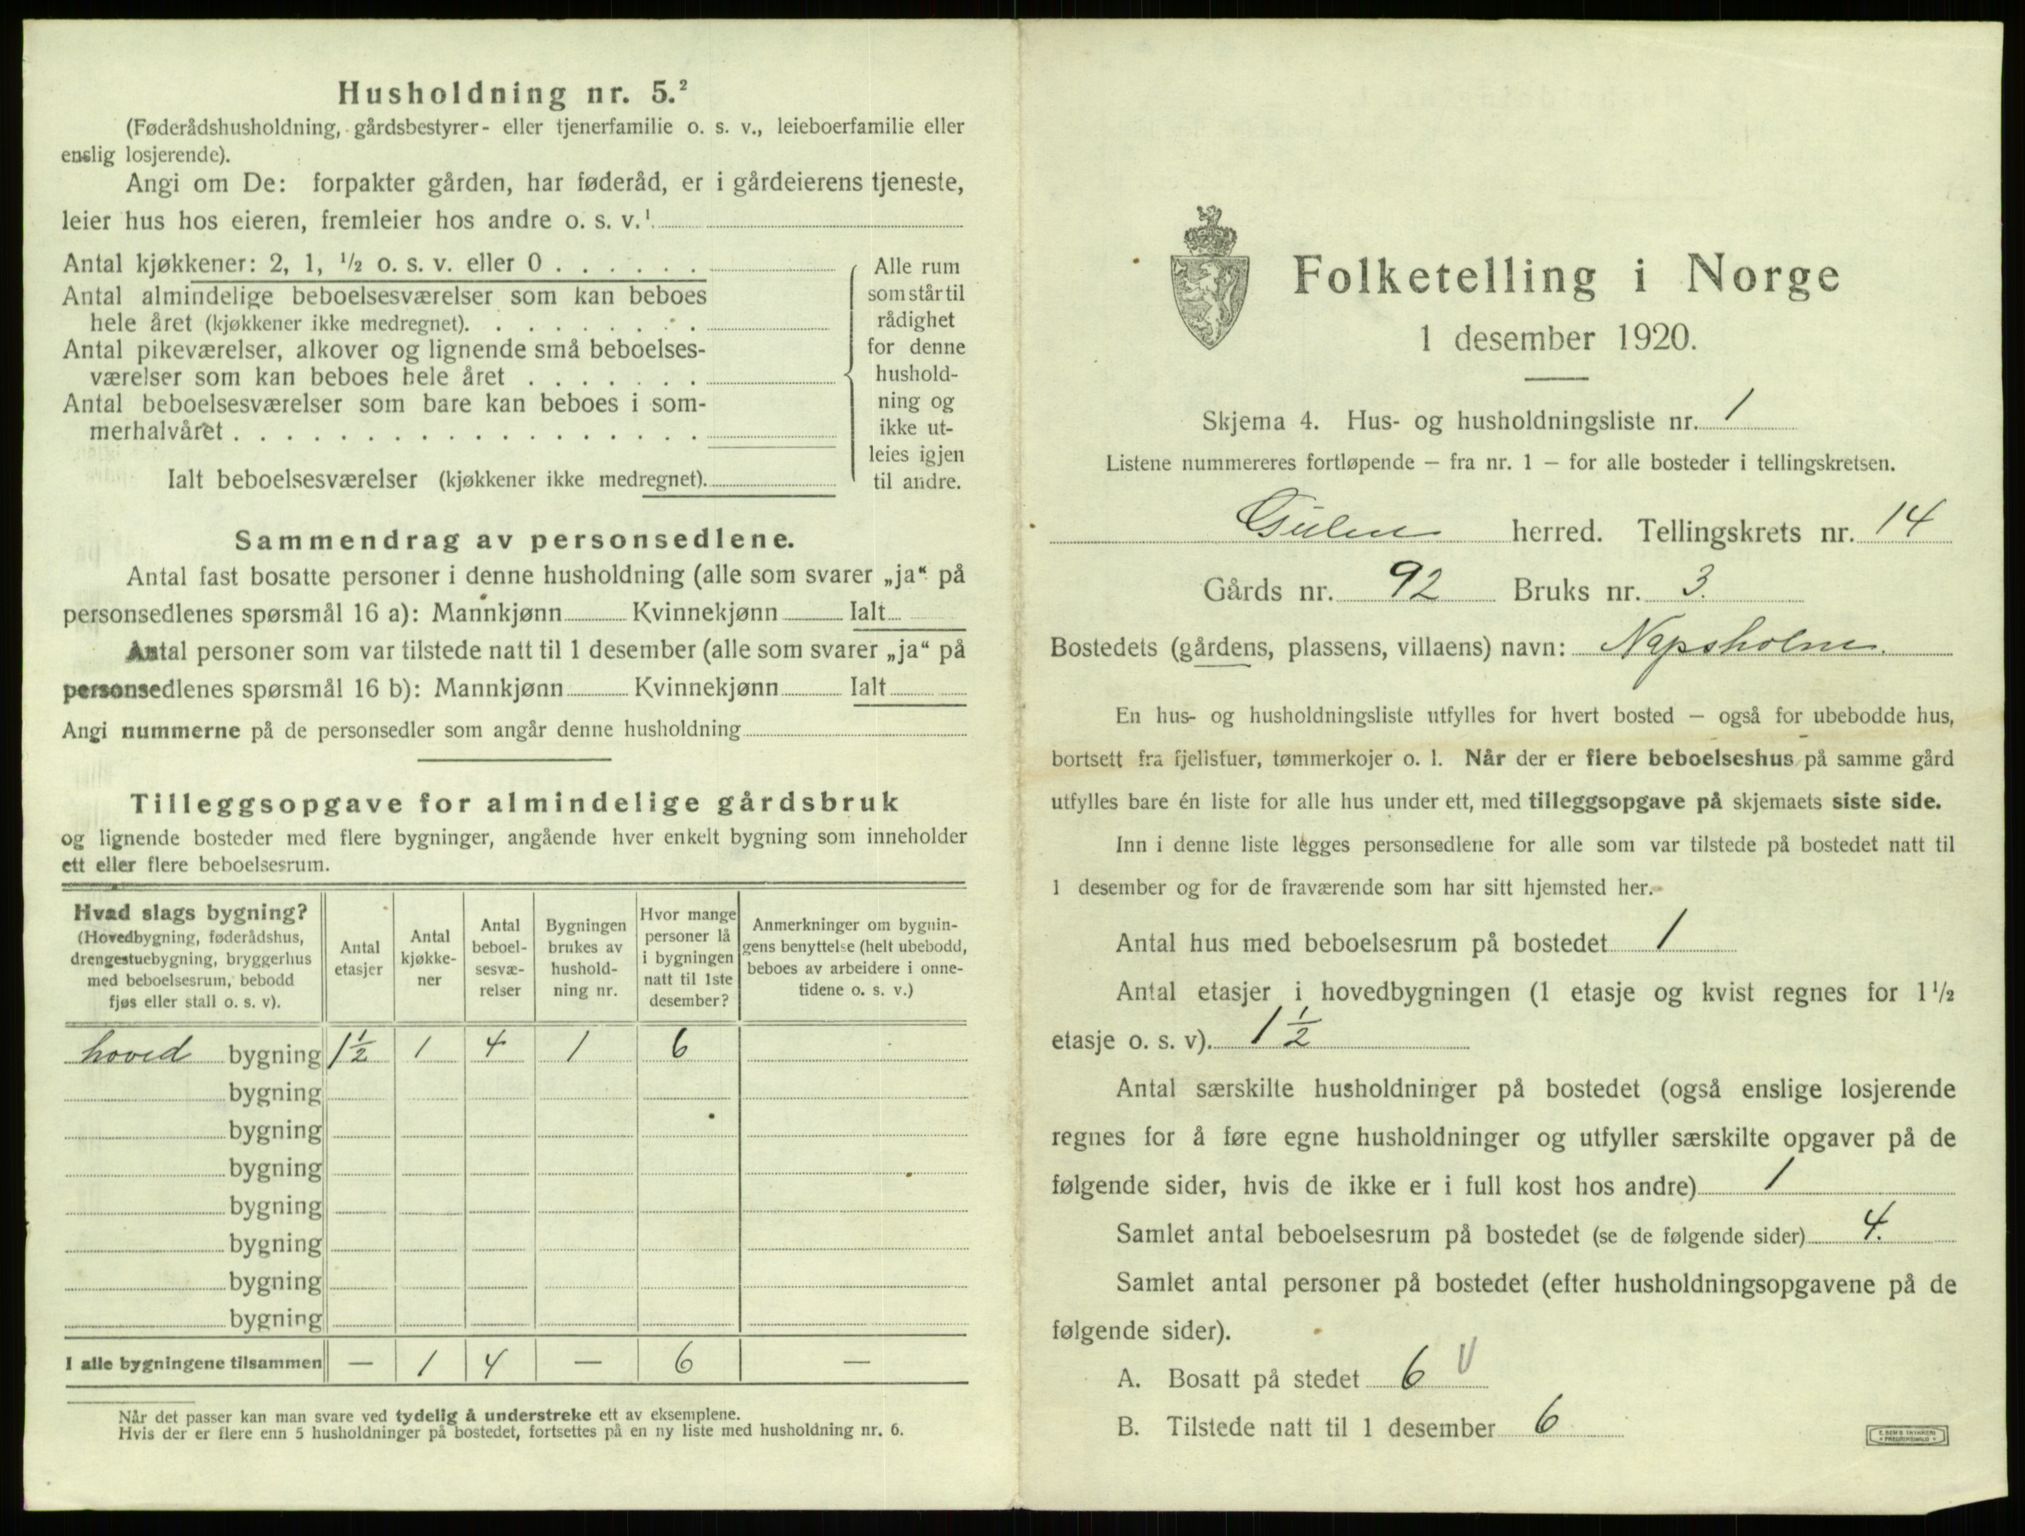 Husholdning nr. 5.²
(Føderådshusholdning, gårdsbestyrer- eller tjenerfamilie o. s. v., leieboerfamilie eller
enslig losjerende).
Angi om De: forpakter gården, har føderåd, er i gårdeierens tjeneste,
leier hus hos eieren, fremleier hos andre o. s. v.¹
Antal kjøkkener: 2, 1, ½ o. s. v. eller 0
Antal almindelige beboelsesværelser som kan beboes
hele året (kjøkkener ikke medregnet).
Antal pikeværelser, alkover og lignende små beboelses-
værelser som kan beboes hele året
Antal beboelsesværelser som bare kan beboes i som-
merhalvåret
Ialt beboelsesværelser (kjøkkener ikke medregnet).
Alle rum
som står til
rådighet
for denne
hushold-
ning og
ikke ut-
leies igjen
til andre.
Sammendrag av personsedlene.
Antal fast bosatte personer i denne husholdning (alle som svarer „ja“ på
personsedlenes spørsmål 16 a): Mannkjønn Kvinnekjønn Ialt
Antal personer som var tilstede natt til 1 desember (alle som svarer „ja“ på
personsedlenes spørsmål 16 b): Mannkjønn Kvinnekjønn Ialt
Angi nummerne på de personsedler som angår denne husholdning
Tilleggsopgave for almindelige gårdsbruk
og lignende bosteder med flere bygninger, angående hver enkelt bygning som inneholder
ett eller flere beboelsesrum.
Hvad slags bygning?
(Hovedbygning, føderådshus,
drengestuebygning, bryggerhus
med beboelsesrum, bebodd
fjøs eller stall o. s. v).
Antal
etasjer
Antal
kjøkke-
ner
Antal
beboel-
sesvæ-
relser
Bygningen
brukes av
hushold-
ning nr.
Hvor mange
personer lå
i bygningen
natt til 1ste
desember?
Anmerkninger om bygnin-
gens benyttelse (helt ubebodd,
beboes av arbeidere i onne-
tidene o. s. v.)
hoved bygning 1½ 1 4 1 6
bygning
bygning
bygning
bygning
bygning
bygning
bygning
I alle bygningene tilsammen — 1 4 — 6 —
Når det passer kan man svare ved tydelig å understreke ett av eksemplene.
Hvis der er flere enn 5 husholdninger på bostedet, fortsettes på en ny liste med husholdning nr. 6.
Folketelling i Norge
1 desember 1920.
Skjema 4. Hus- og husholdningsliste nr. 1
Listene nummereres fortløpende – fra nr. 1 – for alle bosteder i tellingskretsen.
Gulen herred. Tellingskrets nr. 14
Gårds nr. 92 Bruks nr. 3.
Bostedets (gårdens, plassens, villaens) navn: Napsholm.
En hus- og husholdningsliste utfylles for hvert bosted – også for ubebodde hus,
bortsett fra fjellstuer, tømmerkojer o. l. Når der er flere beboelseshus på samme gård
utfylles bare én liste for alle hus under ett, med tilleggsopgave på skjemaets siste side.
Inn i denne liste legges personsedlene for alle som var tilstede på bostedet natt til
1 desember og for de fraværende som har sitt hjemsted her.
Antal hus med beboelsesrum på bostedet 1
Antal etasjer i hovedbygningen (1 etasje og kvist regnes for 1½
etasje o. s. v). 1½
Antal særskilte husholdninger på bostedet (også enslige losjerende
regnes for å føre egne husholdninger og utfyller særskilte opgaver på de
følgende sider, hvis de ikke er i full kost hos andre) 1
Samlet antal beboelsesrum på bostedet (se de følgende sider) 4.
Samlet antal personer på bostedet (efter husholdningsopgavene på de
følgende sider).
A. Bosatt på stedet 6
B. Tilstede natt til 1 desember 6